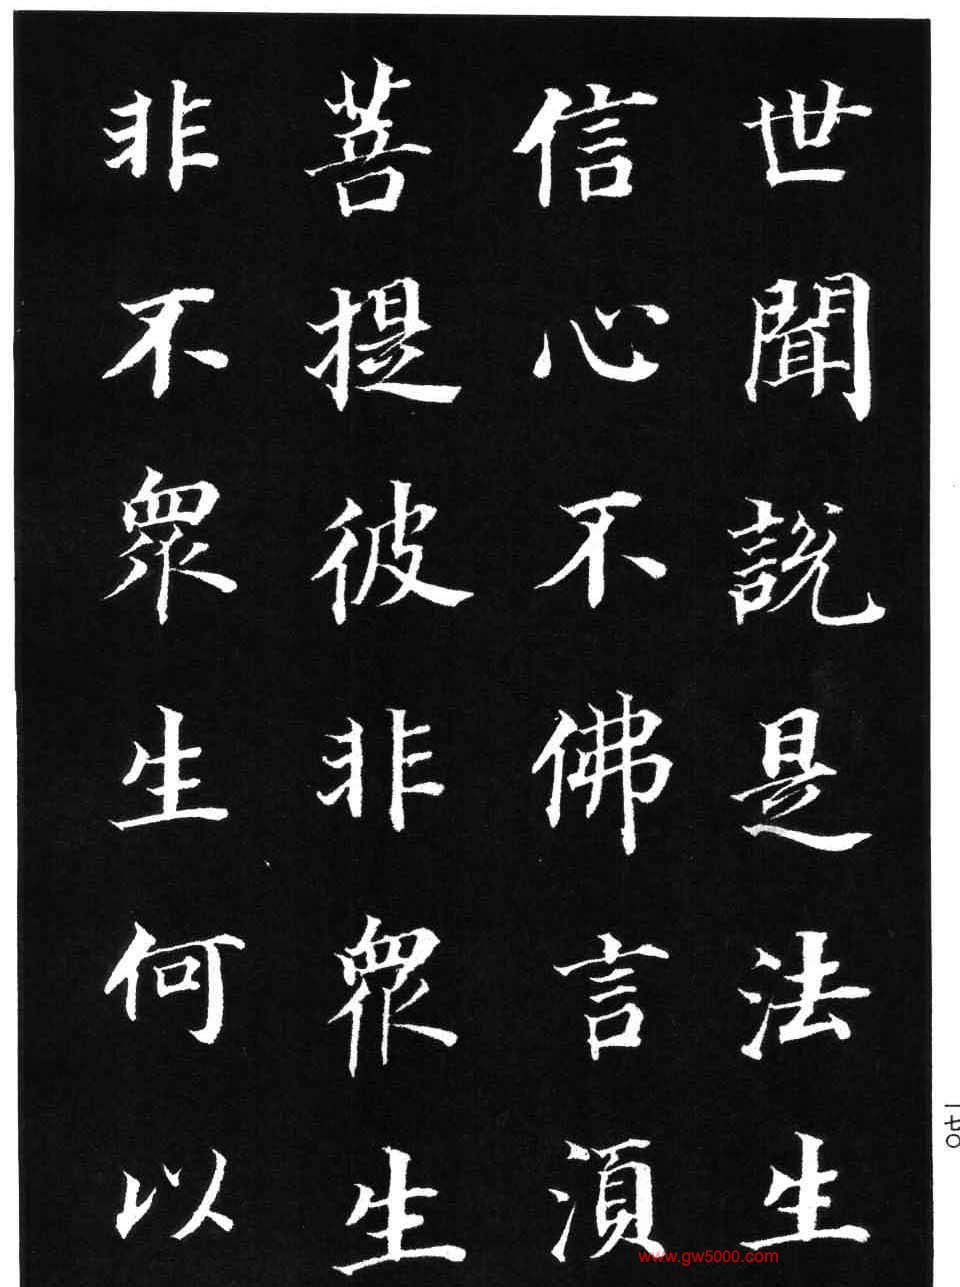 世聞說是法生
信心不佛言湏
菩提彼非眾生
非不眾生何以
一七〇
www.gw5000.com